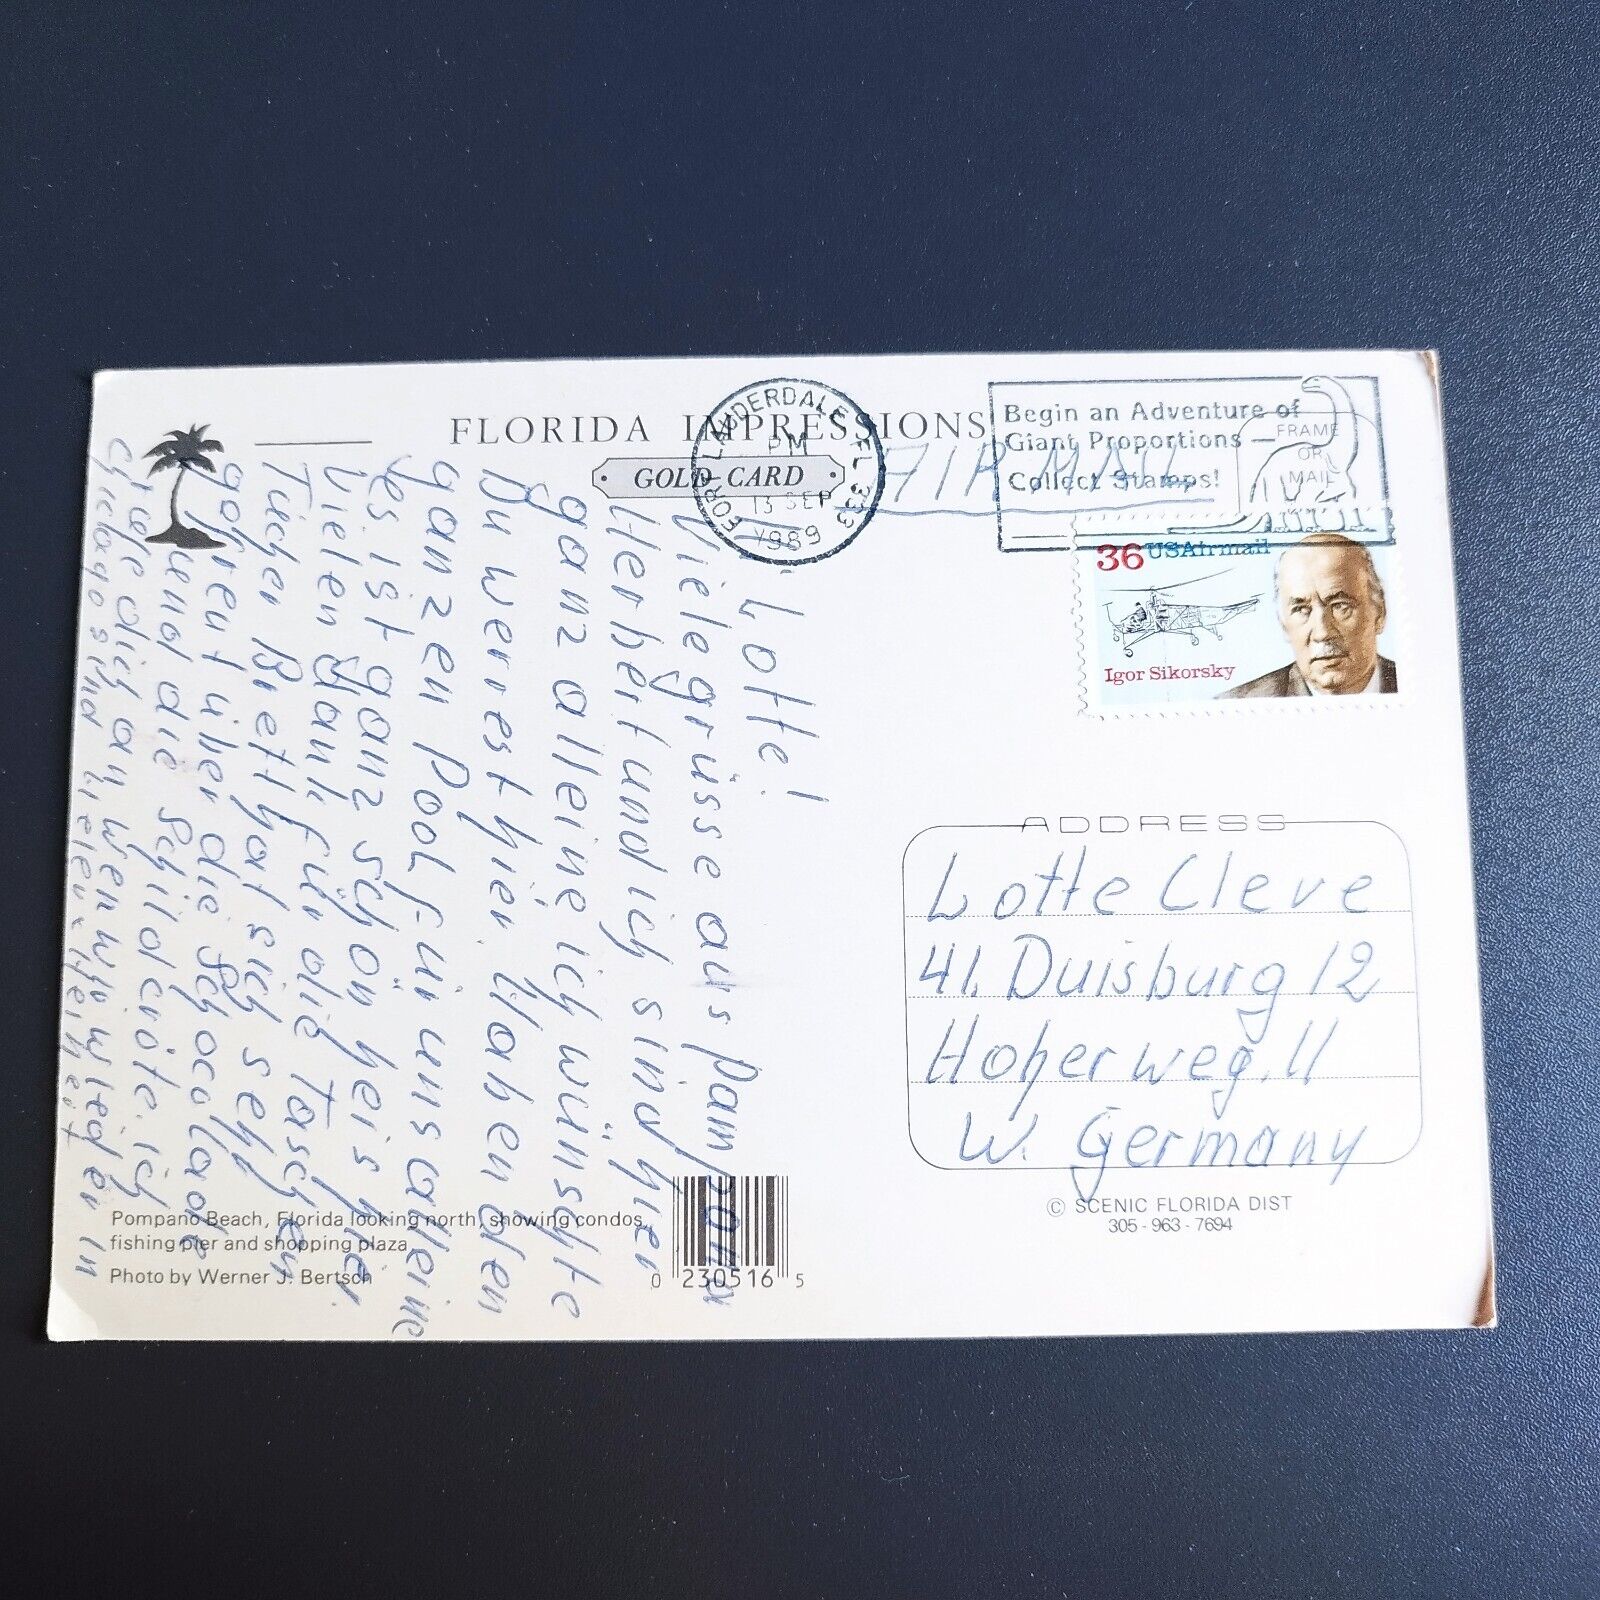 FLORIDA IMPRESSIONS
GOLD CARD
FORT LAUDERDALE FL 333
PM
13 SEP
1989
Begin an Adventure of
Giant Proportions —
Collect Stamps!
FRAME
OR
MAIL
AIR MAIL
36 USAirmail
Igor Sikorsky
Lotte!
Viele grüsse aus Pampono
Herbert und ich sind hier
ganz alleine ich wünschte
Du werest hier. Haben den
ganzen Pool für uns alleine
es ist ganz schön heis hier.
Vielen Dank für die Taschen
Tücher Brett hat sich sehr
gefreut über die Schocolade
und die Schildcröte. ich
rufe dich an wen wir wieder in
Chicago sind Vielen
ADDRESS
Lotte Cleve
41. Duisburg 12
Hoherweg. 11
W. Germany
© SCENIC FLORIDA DIST
305-963-7694
Pompano Beach, Florida looking north, showing condos,
fishing pier and shopping plaza
Photo by Werner J. Bertsch
0 230516 5